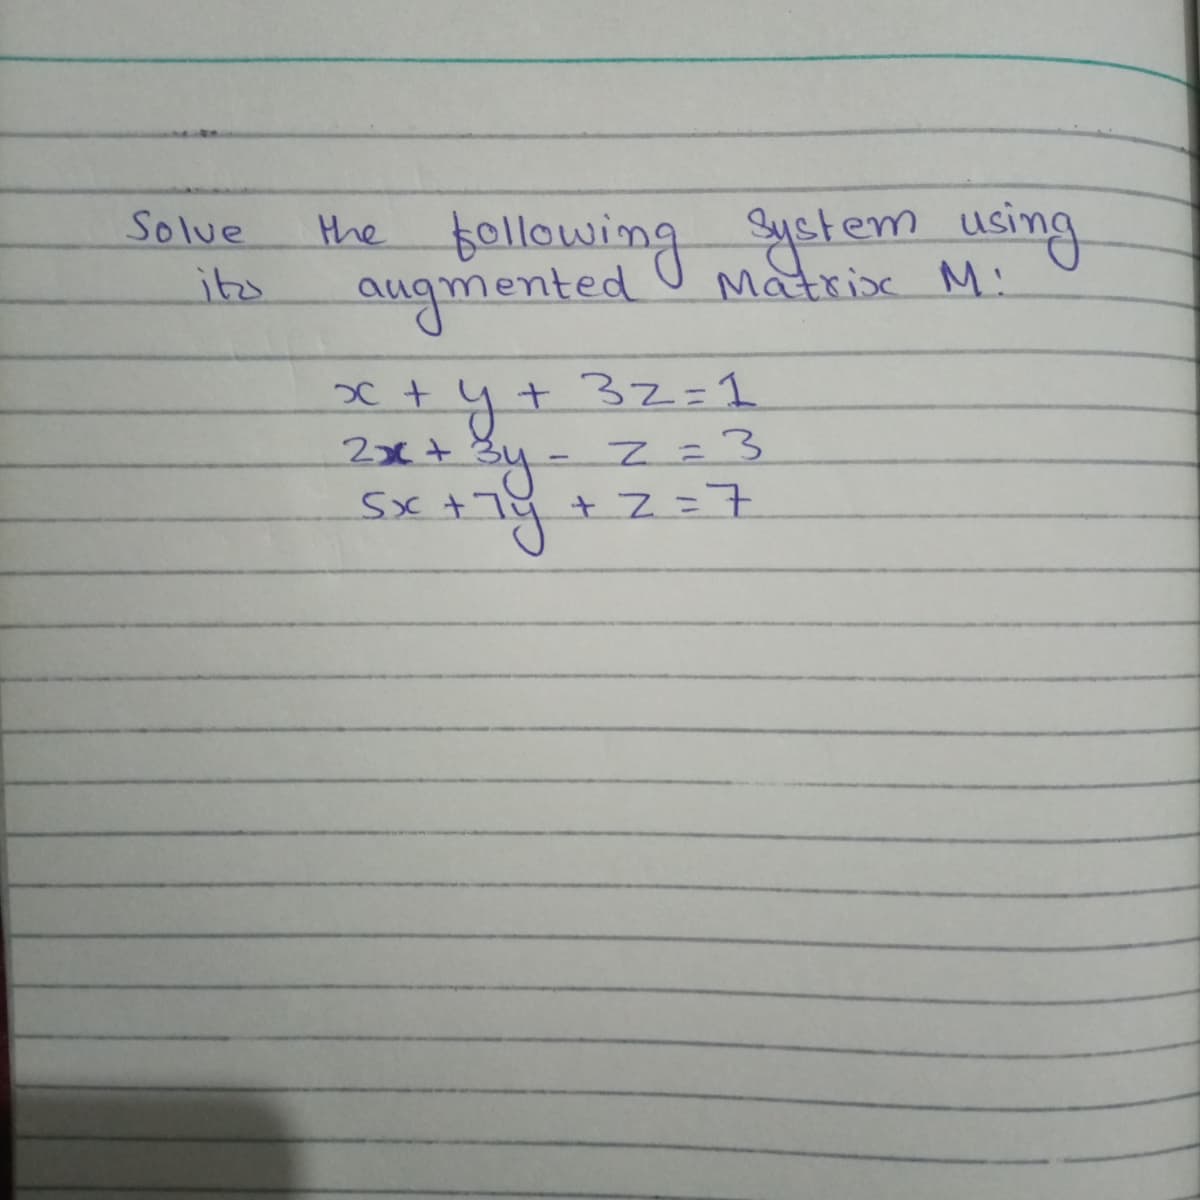 Solve the following System using
its augmented Matrix M:
x + y + 3z = 1
2x + 3y - z = 3
5x + 7y + z = 7